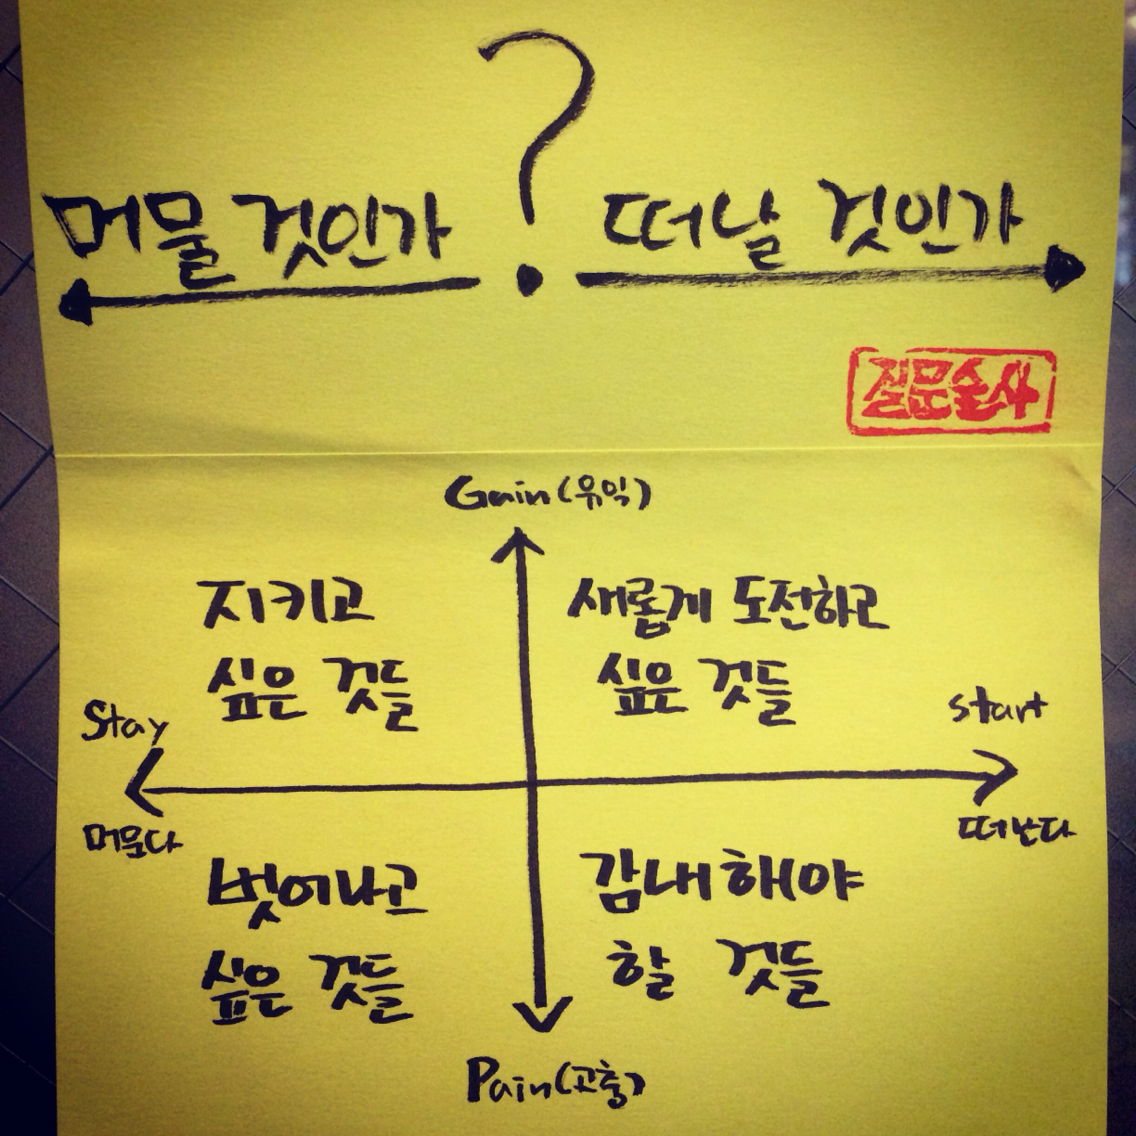 ?
머물 것인가 떠날 것인가
질문술사
Gain(유익)
지키고 새롭게 도전하고
싶은 것들 싶은 것들
Stay start
머문다 떠난다
벗어나고 감내해야
싶은 것들 할 것들
Pain(고충)